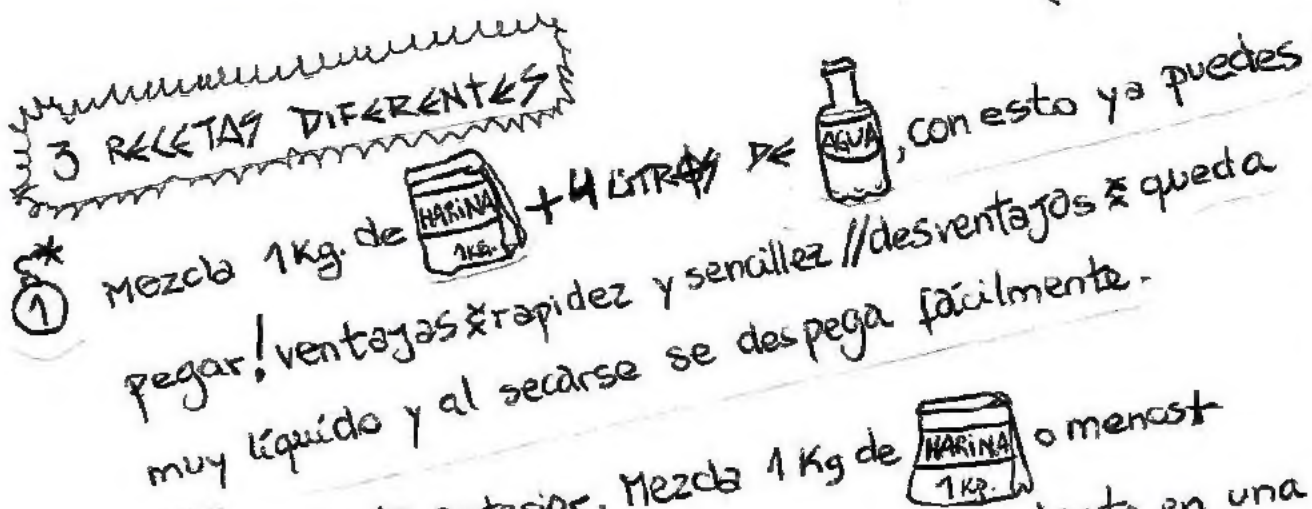 3 RECETAS DIFERENTES
1 Mezcla 1Kg. de HARINA 1KG. + 4 LITROS DE AGUA, con esto ya puedes
pegar! ventajas : rapidez y sencillez // desventajas : queda
muy líquido y al secarse se despega fácilmente.
anterior. Mezcla 1 Kg de HARINA 1 KG. o menos +
en una